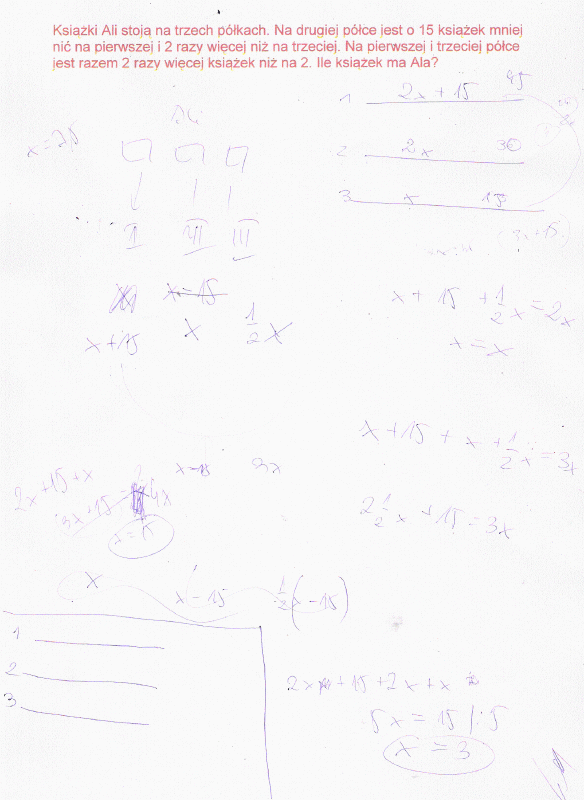 Książki Ali stoją na trzech półkach. Na drugiej półce jest o 15 książek mniej
nić na pierwszej i 2 razy więcej niż na trzeciej. Na pierwszej i trzeciej półce
jest razem 2 razy więcej książek niż na 2. Ile książek ma Ala?
1 2x + 15 45
2 2x 30
3 x 15
I II III
x - 15
x + 15 x 1/2 x
(3x + 15)
x + 15 + 1/2 x = 2x
x = x
x + 15 + x + 1/2 x = 3x
2 1/2 x + 15 = 3x
2x + 15 + x
3x + 15 = 4x
x = 15
x - 15 3x
x x - 15 1/2 (x - 15)
1
2
3
2x + 15 + 2x + x
5x = 15 /: 5
x = 3